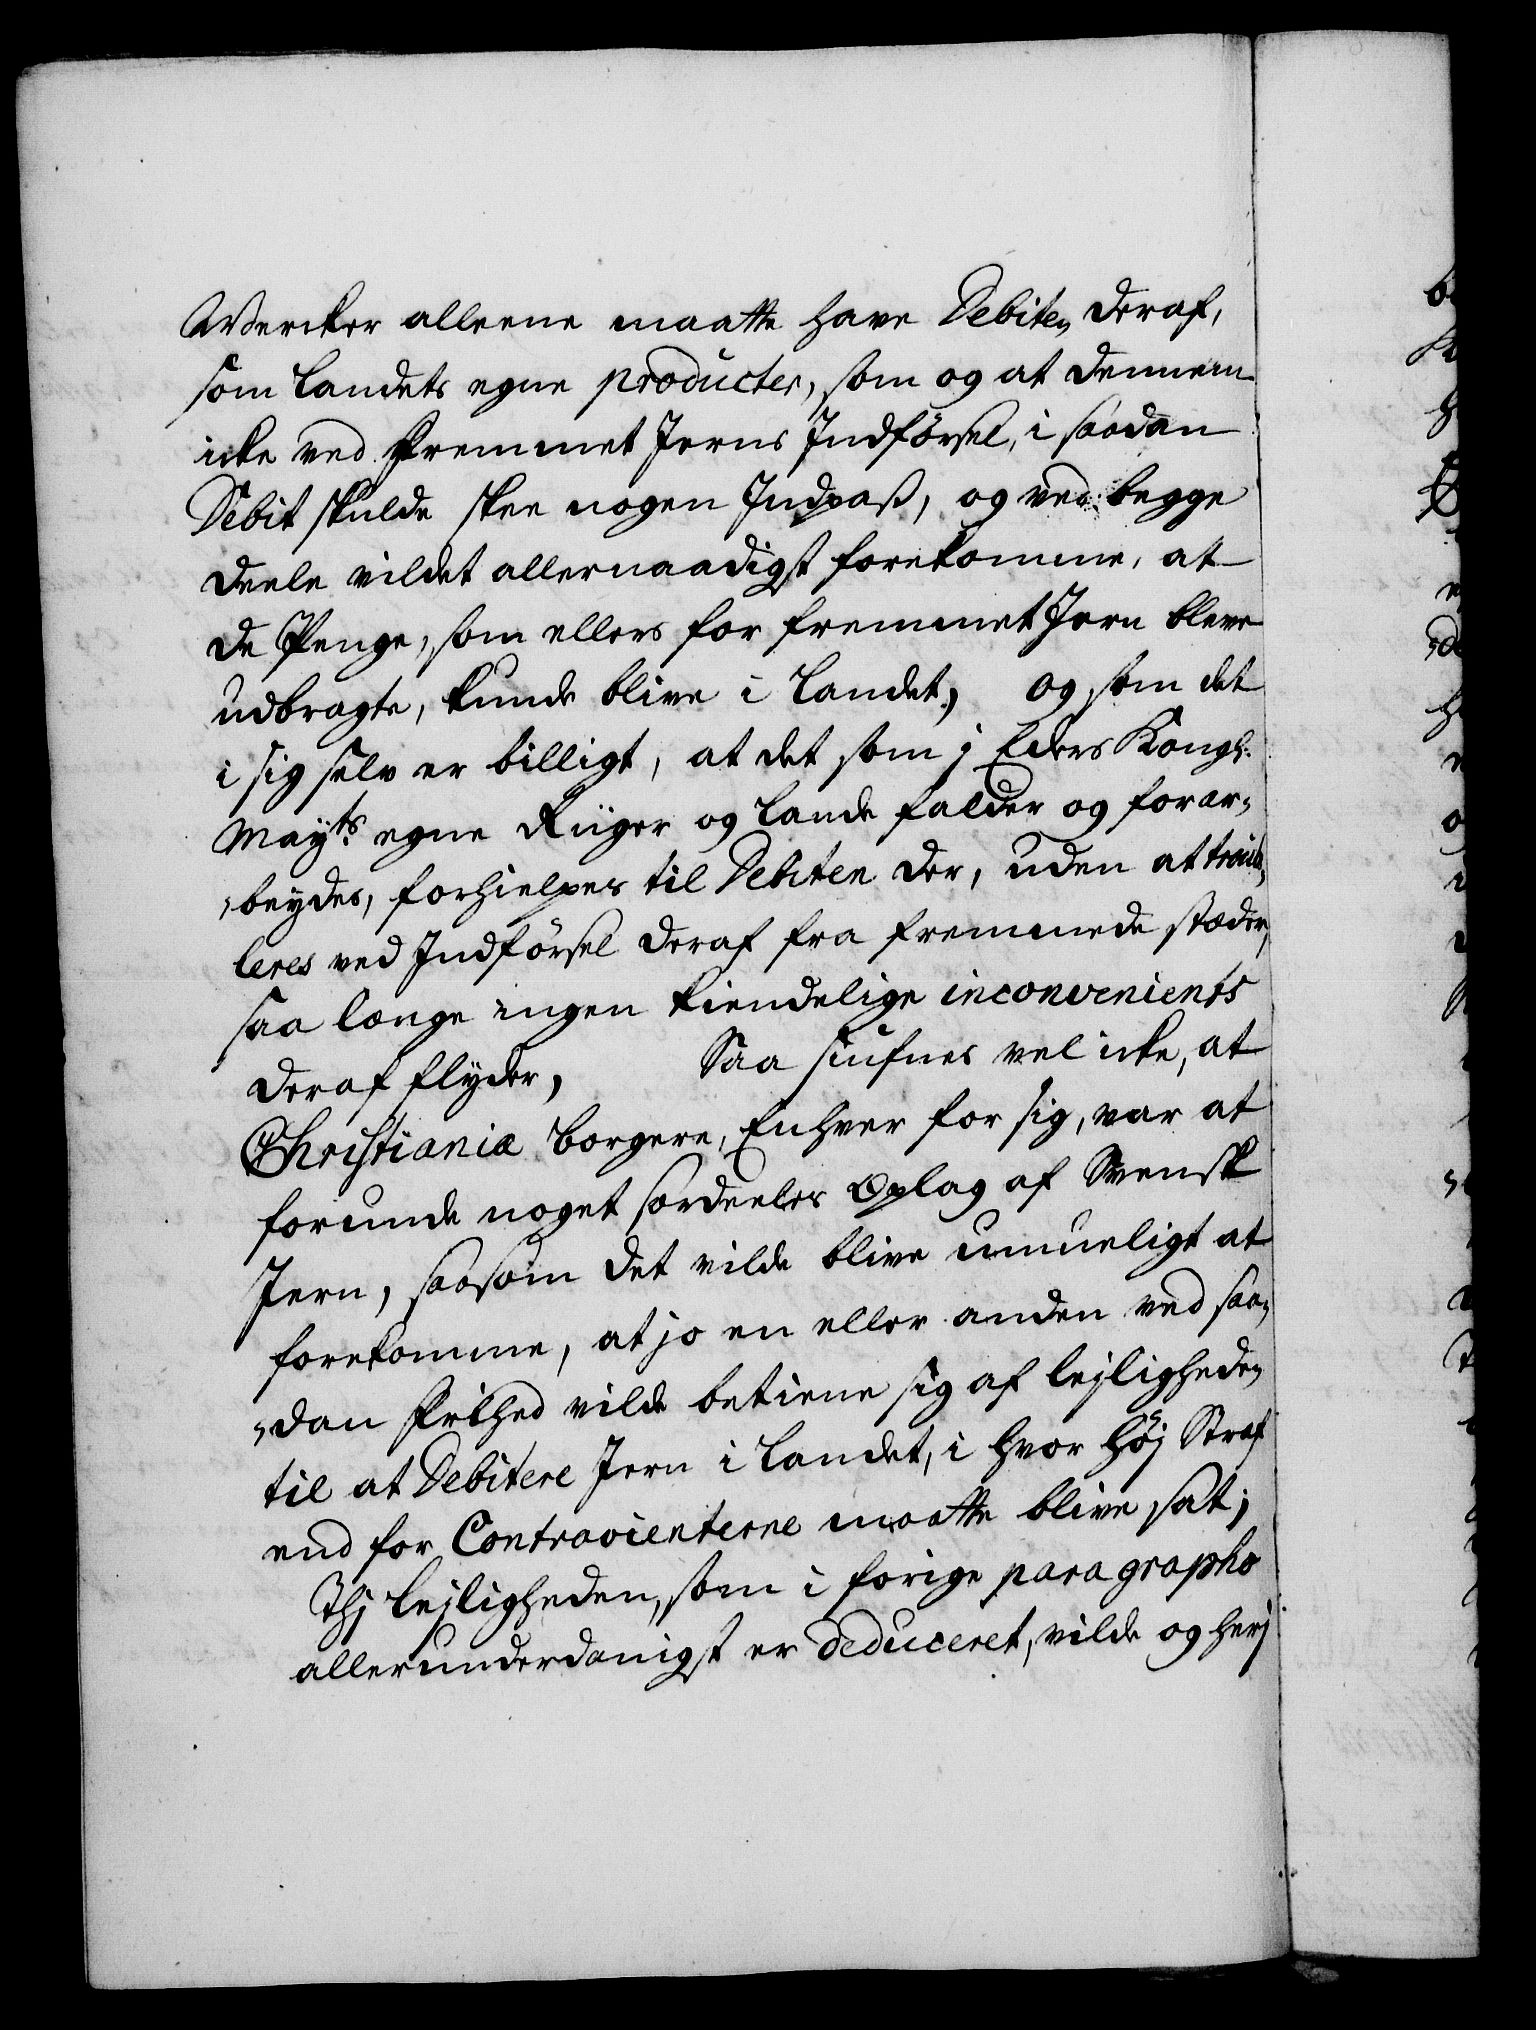 Wercker alleene maatte have Debiten deraf,
som Landets egne producter, som og at dennem
icke ved fremmet Jerns Indførsel, i saadan
Debit skulde skee nogen Indpaß, og ved begge
deele vildet allernaadigst forekomme, at
de Penge, som ellers for fremmet Jern bleve
udbragte, kunde blive i Landet, og som det
i sig selv er billigt, at det som j Eders Kongl:
Mayts egne Riiger og Lande falder og forar-
beydes, forhielpes til Debiten der, uden at troub-
leres ved Indførsel deraf fra fremmede stæder,
saa længe ingen kiendelige inconvenients
deraf flyder, Saa siufnes vel icke, at
Christianiæ borgere, Enhver for sig, var at
forunde noget særdeeles Oplag af Svensk
Jern, saasom det vilde blive umueligt at
forekomme, at jo en eller anden ved saa-
dan frihed vilde betiene sig af lejligheden
til at Debitere Jern i Landet, i hvor høj Straf
end for Contravienterne maatte blive sat;
Thj lejligheden, som i forige paragrapho
allerunderdanigst er deduceret, vilde og herj